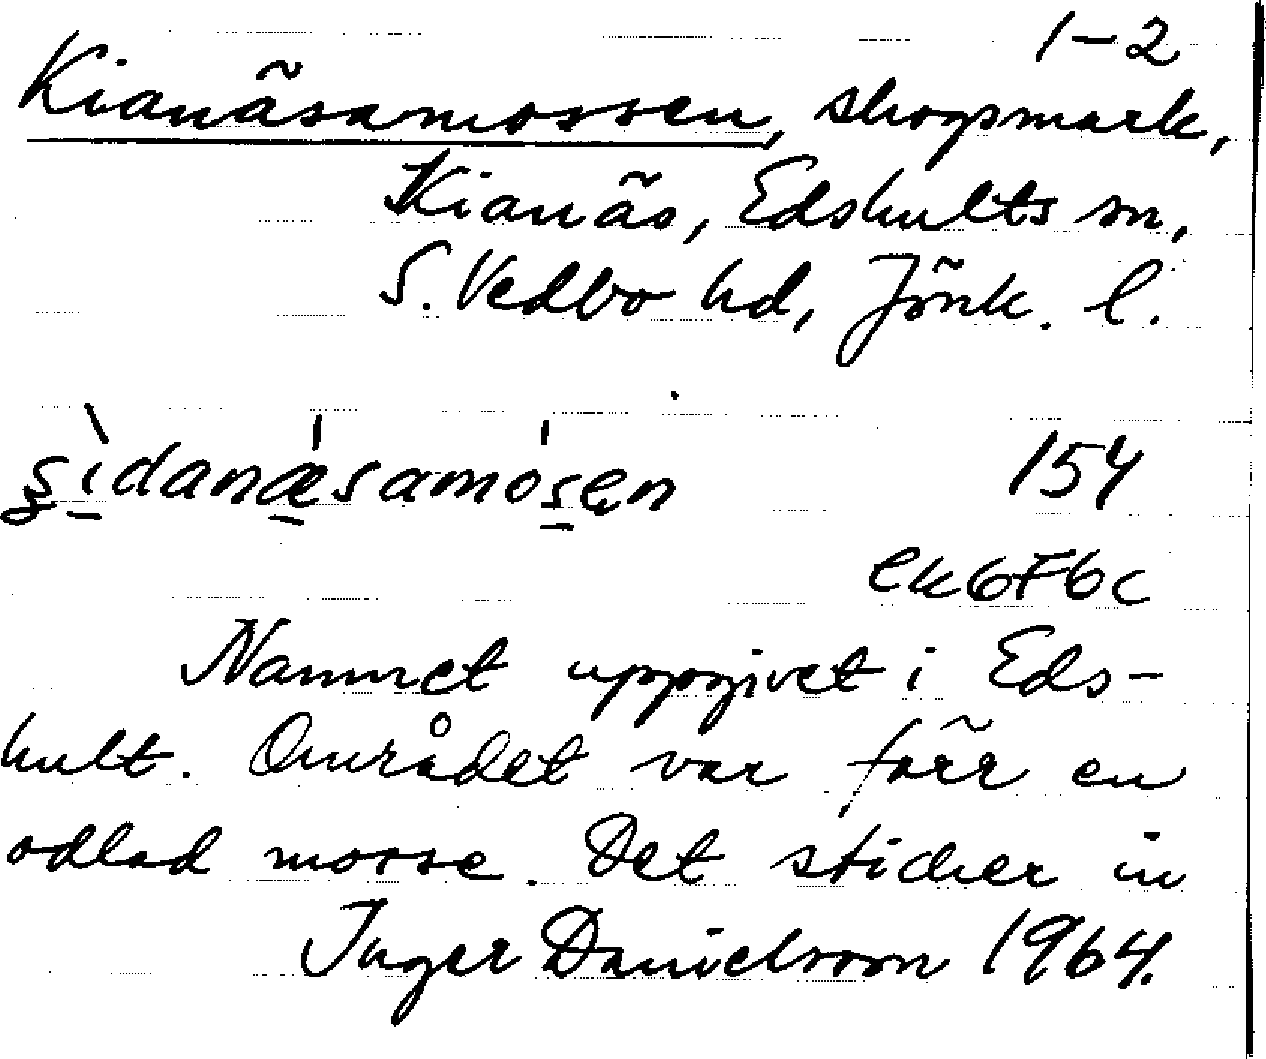 1-2
Kianäsamossen, skogsmark,
Kianäs, Edshults sn,
S. Vedbo hd, Jönk. l.
154
ek6F6c
Namnet uppgivet i Eds-
hult. Området var förr en
odlad mosse. Det sticker in
Inger Danielsson 1964.